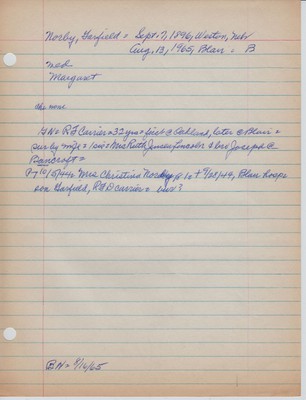 Norby, Garfield = Sept. 7, 1896, Weston, Nebr
Aug. 13, 1965, Blair = B
med.
Margaret
no more
GN = RF Carrier = 32 yrs = first @ Oakland, later @ Blair =
sur by m/c = / sis = Mrs Ruth Jensen, Lincoln & bro Joseph @
Bancroft =
Mrs. Christina Norby @ Blair Hosp =
son Garfield, RFD carrier =
BN = 8/16/65